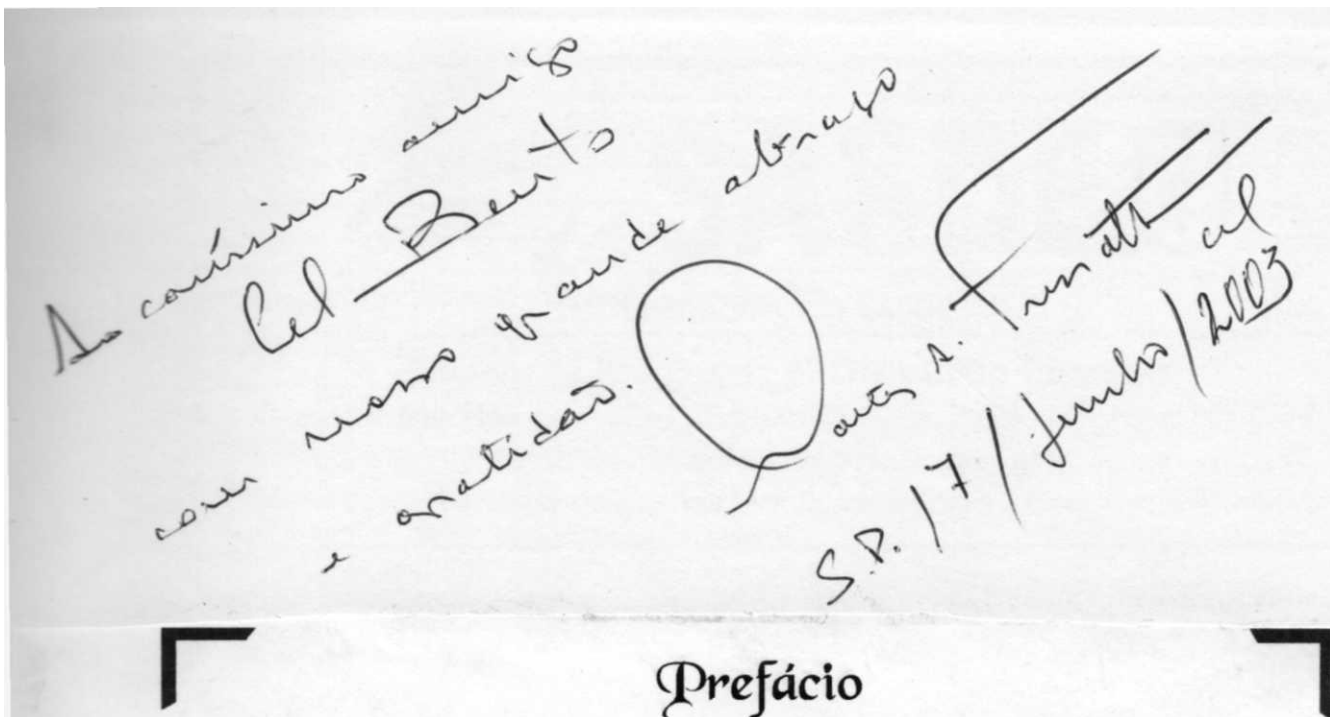 Ao caríssimo amigo
Cel Bento
com nosso grande abraço
e gratidão.
S.P./7/junho/2003
Prefácio